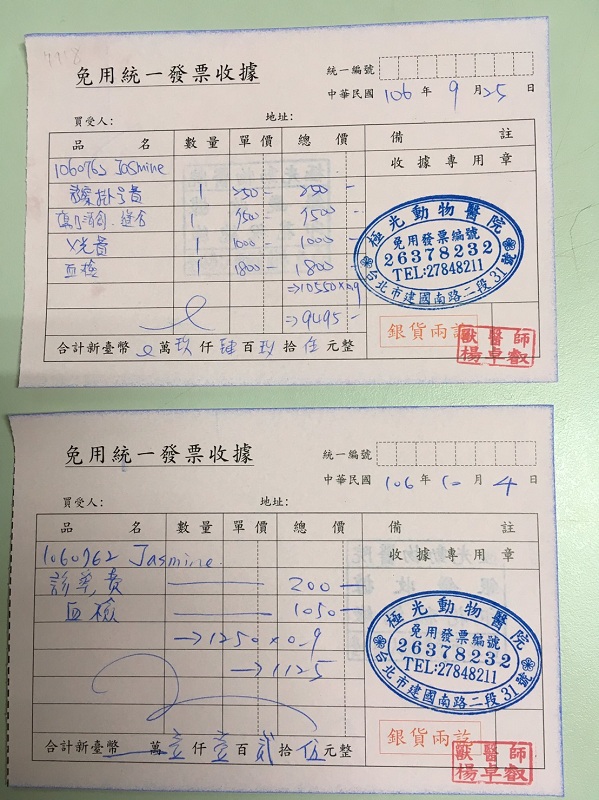 免用統一發票收據
統一編號
中華民國 106 年 9 月 25 日
買受人: 地址:
品名 數量 單價 總價 備註
收據專用章
1060762 Jasmine
掛号費 1 250- 250-
1 7500- 7500-
X光費 1 1000- 1000-
血檢 1 1800- 1800
⇒10550×0.9
⇒9495-
極光動物醫院
免用發票編號
26378232
TEL:27848211
台北市建國南路二段31號
銀貨兩訖
獸醫師
楊卓叡
合計新臺幣 萬玖仟肆百玖拾伍元整
免用統一發票收據
統一編號
中華民國 106 年 10 月 4 日
買受人: 地址:
品名 數量 單價 總價 備註
收據專用章
1060762 Jasmine
診察費 200
血檢 1050
→1250×0.9
→1125
極光動物醫院
免用發票編號
26378232
TEL:27848211
台北市建國南路二段31號
銀貨兩訖
獸醫師
楊卓叡
合計新臺幣 萬壹仟壹百貳拾伍元整